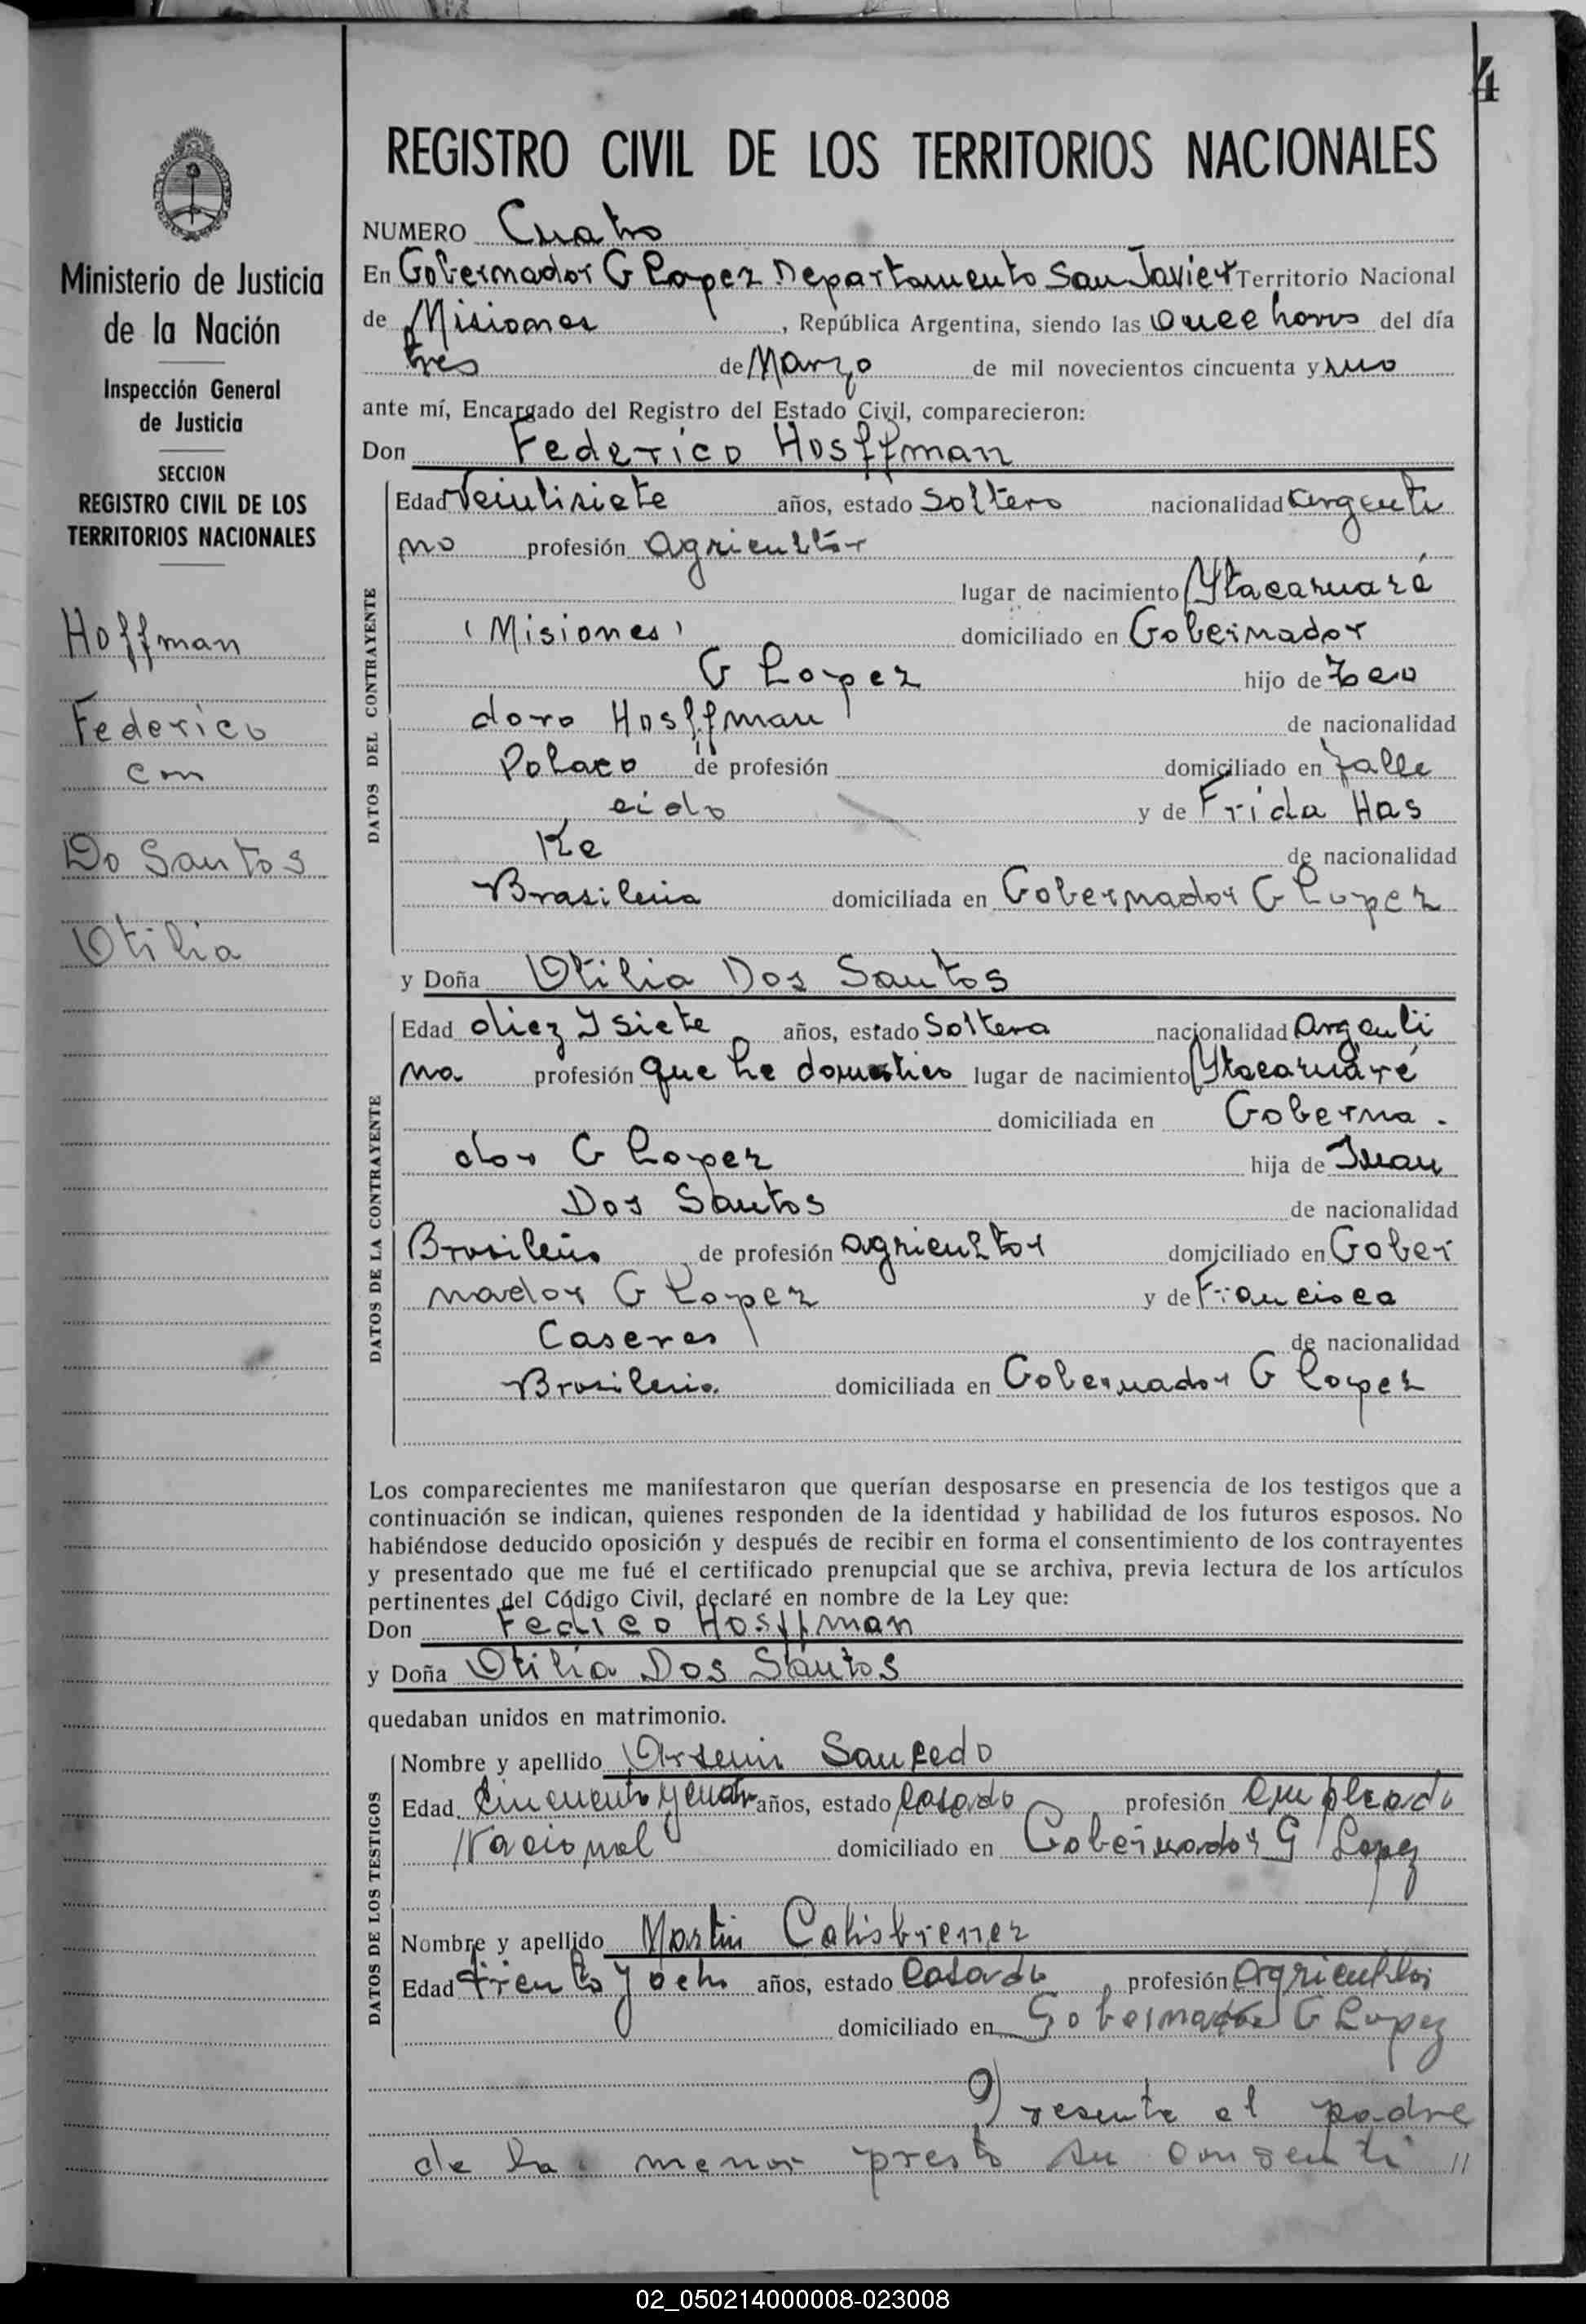 4
REGISTRO CIVIL DE LOS TERRITORIOS NACIONALES
Ministerio de Justicia
de la Nación
Inspección General
de Justicia
SECCION
REGISTRO CIVIL DE LOS
TERRITORIOS NACIONALES
Hoffman
Federico
con
Do Santos
Otilia
NUMERO Cuatro
En Gobernador G Lopez Departamento San Javier Territorio Nacional
de Misiones, República Argentina, siendo las once horas del día
tres de Marzo de mil novecientos cincuenta y uno
ante mí, Encargado del Registro del Estado Civil, comparecieron:
Don Federico Hosffman
DATOS DEL CONTRAYENTE
Edad Veintisiete años, estado Soltero nacionalidad argenti
no profesión agricultor
lugar de nacimiento Ytacaruaré
(Misiones) domiciliado en Gobernador
G Lopez hijo de Teo
doro Hosffman de nacionalidad
Polaco de profesión domiciliado en falle
cido y de Frida Has
Ke de nacionalidad
Brasileña domiciliada en Gobernador G Lopez
y Doña Otilia Dos Santos
DATOS DE LA CONTRAYENTE
Edad diez y siete años, estado Soltera nacionalidad argenti
na profesión que he domestico lugar de nacimiento Ytacaruaré
domiciliada en Goberna -
dor G Lopez hija de Juan
Dos Santos de nacionalidad
Brasileño de profesión agricultor domiciliado en Gober
nador G Lopez y de Francisca
Caseres de nacionalidad
Brasileña domiciliada en Gobernador G Lopez
Los comparecientes me manifestaron que querían desposarse en presencia de los testigos que a
continuación se indican, quienes responden de la identidad y habilidad de los futuros esposos. No
habiéndose deducido oposición y después de recibir en forma el consentimiento de los contrayentes
y presentado que me fué el certificado prenupcial que se archiva, previa lectura de los artículos
pertinentes del Código Civil, declaré en nombre de la Ley que:
Don Fedico Hosffman
y Doña Otilia Dos Santos
quedaban unidos en matrimonio.
DATOS DE LOS TESTIGOS
Nombre y apellido Saucedo
Edad Cincuenta y cuatro años, estado Casado profesión Empleado
Nacional domiciliado en Gobernador G Lopez
Nombre y apellido Martin
Edad treinta y ocho años, estado Casado profesión agricultor
domiciliado en Gobernador G Lopez
Presente el padre
de la menor presto su consenti //
02_050214000008-023008